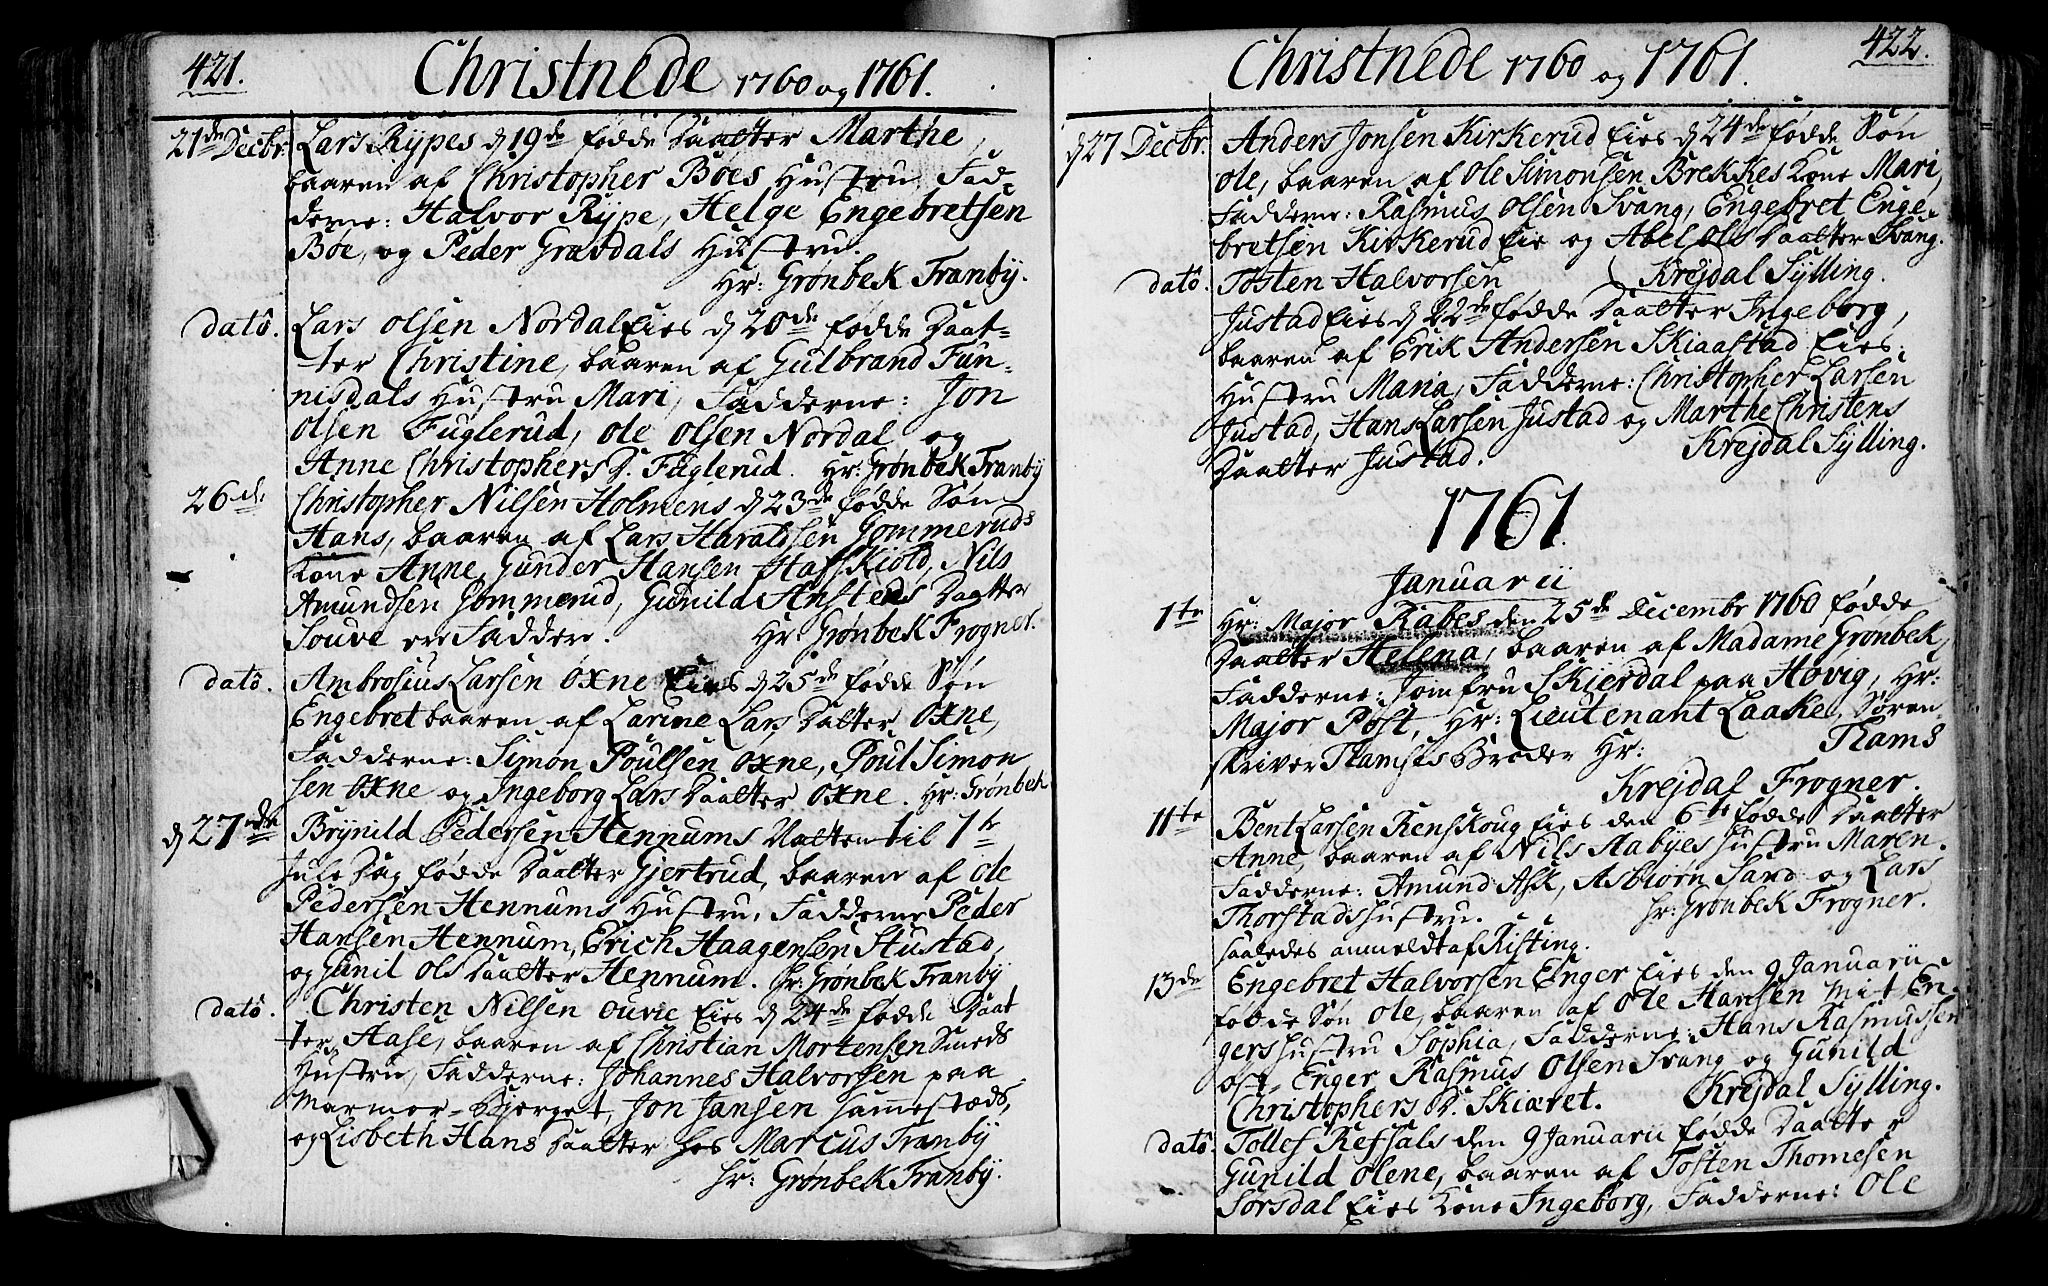 421.
Christnede 1760 og 1761.
21de Decbr. Lars Rypes d 19de fødde Daatter Marthe,
baaren af Christopher Böes Hustru Fad-
derne: Halvor Rype, Helge Engebretsen
Böe, og Peder Gravdals Hustru.
Hr: Grönbek Tranby.
dato. Lars Olsen Nordal Eies d 20de fødde Daat-
ter Christine, baaren af Gulbrand Fun-
nisdals Hustru Mari, Fadderne: Jon
Olsen Fuglerud, Ole Olsen Nordal og
Anne Christophers D. Fuglerud. Hr: Grönbek Tranby
26de Christopher Nilsen Holmens d 23de fødde Søn
Hans, baaren af Lars Haraldsen Gommeruds
Kone Anne, Gunder Hansen Hafskiold, Nils
Amundsen Gommerud, Gunild Anstens Daatter
Souve ere Faddere. Hr: Grönbek Frogner.
dato. Ambrosius Larsen Oxne Eies d 25de fødde Søn
Engebret baaren af Larine Lars Datter Oxne,
Fadderne: Simon Poulsen Oxne, Poul Simon
sen Oxne og Ingeborg Lars Daatter Oxne. Hr: Grönbek
d 27de Brynild Pedersen Hennums Natten til 1te
Jule Dag fødde Daatter Gjertrud, baaren af Ole
Pedersen Hennums Hustru, Fadderne Peder
Hansen Hennum, Erich Haagensen Stustad,
og Gunil Ols Daatter Hennum. Hr: Grönbek Tranby
dato. Christen Nilsen Ouvie Eies d 24de fødde Daat
ter Aase, baaren af Christian Mortensen Smeds
Hustru, Fadderne: Johannes Halvorsen paa
Marmor-Bierget, Jon Jansen sammestæds,
og Lisbeth Hans Daatter hos Marcus Tranby
Hr: Grönbek Tranby.
422.
Christnede 1760 og 1761.
d 27 Decbr. Anders Jonsen Kirkerud Eies d 24de fødde Søn
Ole, baaren af Ole Simonsen Brekkes Kone Mari,
Fadderne: Rasmus Olsen Svang, Engebret Enge-
bretsen Kirkerud Eie og Abel Ols Daatter Svang.
Krejdal Sylling.
dato. Tosten Halvorsen
Justad Eies d 22de fødde Daatter Ingeborg,
baaren af Erik Andersen Skiaastad Eies
Hustru Maria, Fadderne: Christopher Larsen
Justad, Hans Larsen Justad og Marthe Christens
Daatter Justad. Krejdal Sylling.
1761.
Januarii
1te Hr: Major Rabes den 25de Decembr 1760 fødde
Daatter Helena, baaren af Madame Grönbek,
Fadderne: Jomfru Skierdal paa Hovig, Hr:
Major Post, Hr: Lieutenant Laake, Søren-
skriver Rams Broder Hr: Rams
Krejdal Frogner.
11te Bent Larsen Renskoug Eies den 6te fødde Daatter
Anne, baaren af Nils Aabyes Hustru Maren.
Fadderne: Amund Ask, Asbiørn Sand og Lars
Thorstads Hustru. Hr: Grönbek Frogner.
saaledes anmeldt af Risting.
13de Engebret Halvorsen Enger Eies den 9 Januarii
fødde Søn Ole, baaren af Ole Hansen Mit En-
gers Hustru Sophia, Fadderne: Hans Rasmussen
Øst-Enger Rasmus Olsen Svang og Gunild
Christophers D. Skiæret. Krejdal Sylling.
dato. Tollef Refsals den 9 Januarii fødde Daatter
Gunild Olene, baaren af Tosten Thomesen
Sorsdal Eies Kone Ingeborg, Fadderne: Ole